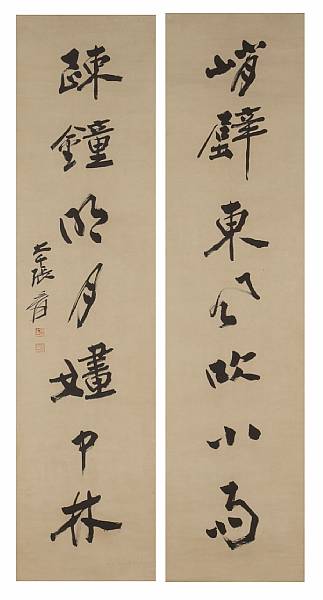 峭壁東風吹小雨
疎鐘明月嫿中林
大千張爰